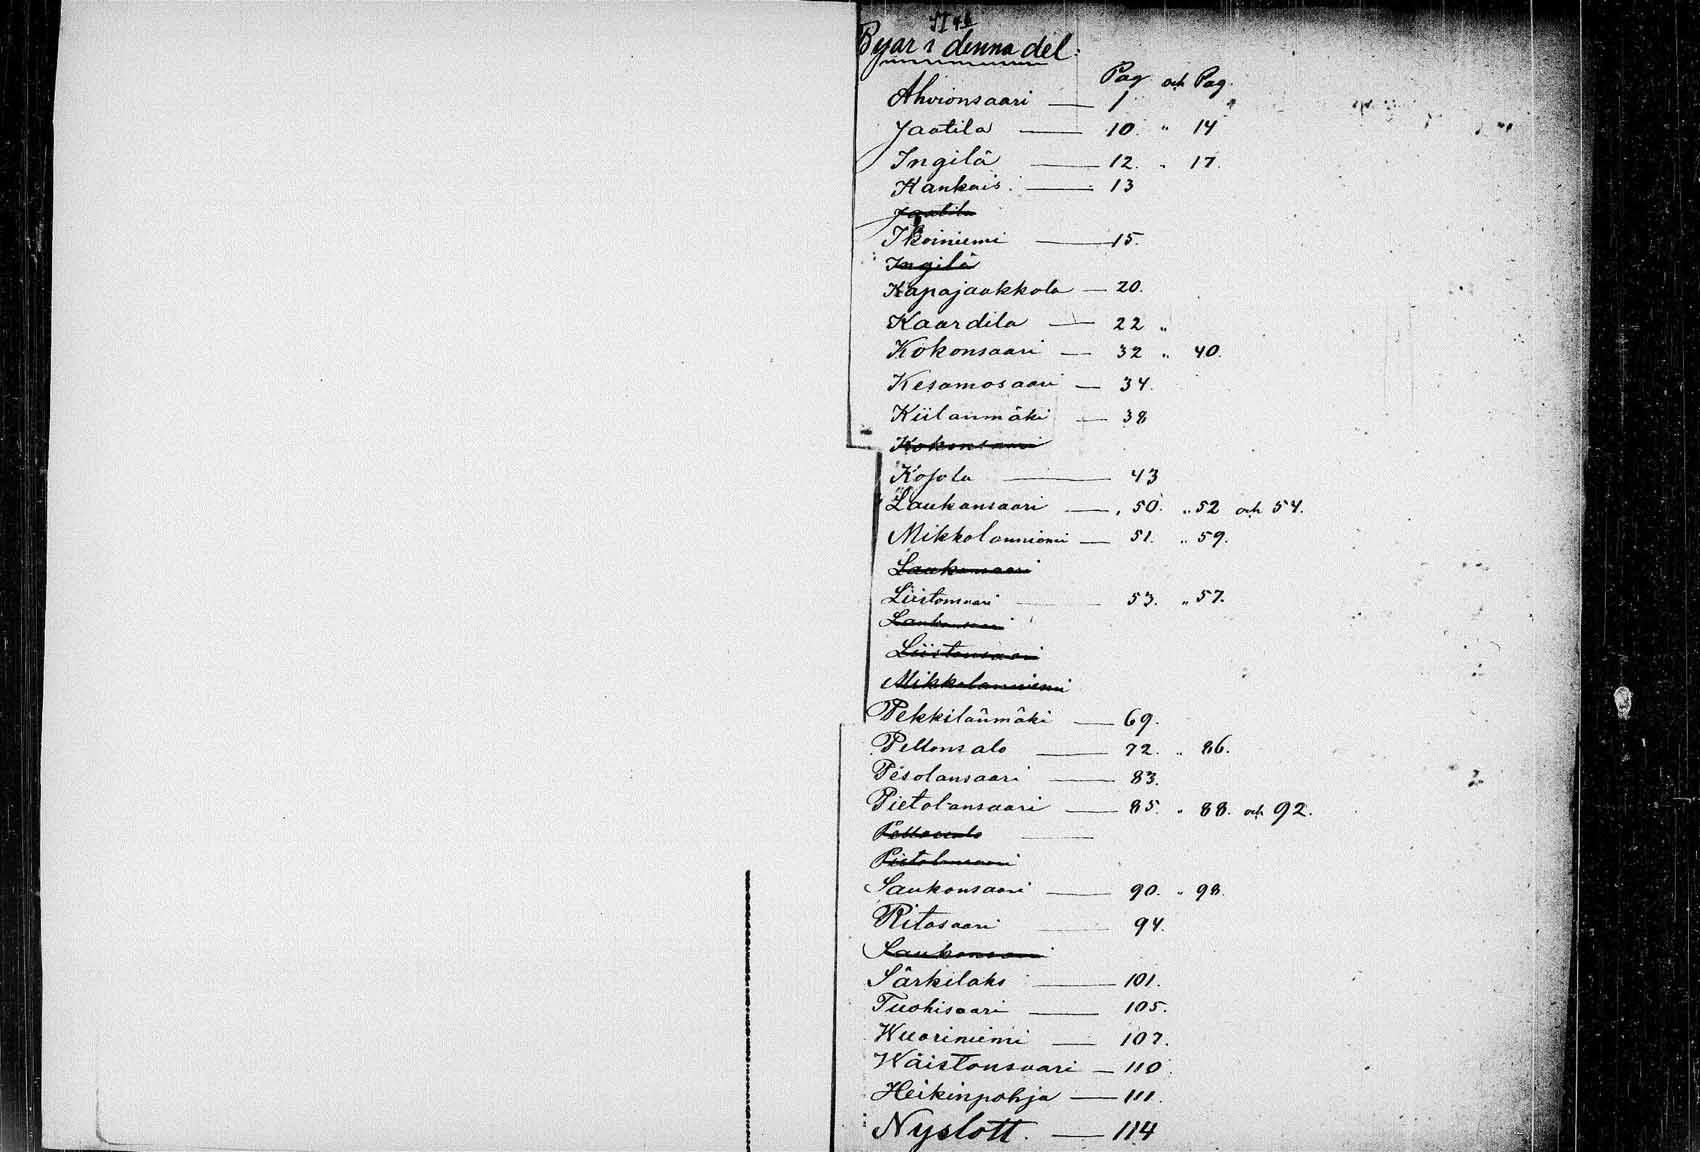 Byar i denna del.
Pag och Pag.
Ahvionsaari — 1
Jaatila — 10 " 14
Ingilä — 12 " 17.
Kankais — 13
Jaatila
Ikoiniemi — 15.
Ingilä
Kapajaakkola — 20.
Kaardila — 22 "
Kokonsaari — 32 " 40.
Kesamosaari — 34.
Kiilanmäki — 38
Kokonsaari
Kosola — 43
Laukansaari — 50. " 52 och 54.
Mikkolanniemi — 51. " 59.
Laukansaari
Liistonsaari — 53. " 57.
Laukansaari
Liistonsaari
Mikkolanniemi
Pekkilänmäki — 69.
Pellonsalo — 72. " 86.
Pesolansaari — 83.
Pietolansaari — 85. " 88. och 92.
Pellonsalo —
Pietolansaari
Saukonsaari — 90. " 98.
Ritosaari — 94.
Saukonsaari
Särkilaks — 101.
Tuohisaari — 105.
Wuoriniemi — 107.
Wäistonsaari — 110.
Heikinpohja — 111.
Nyslott. — 114